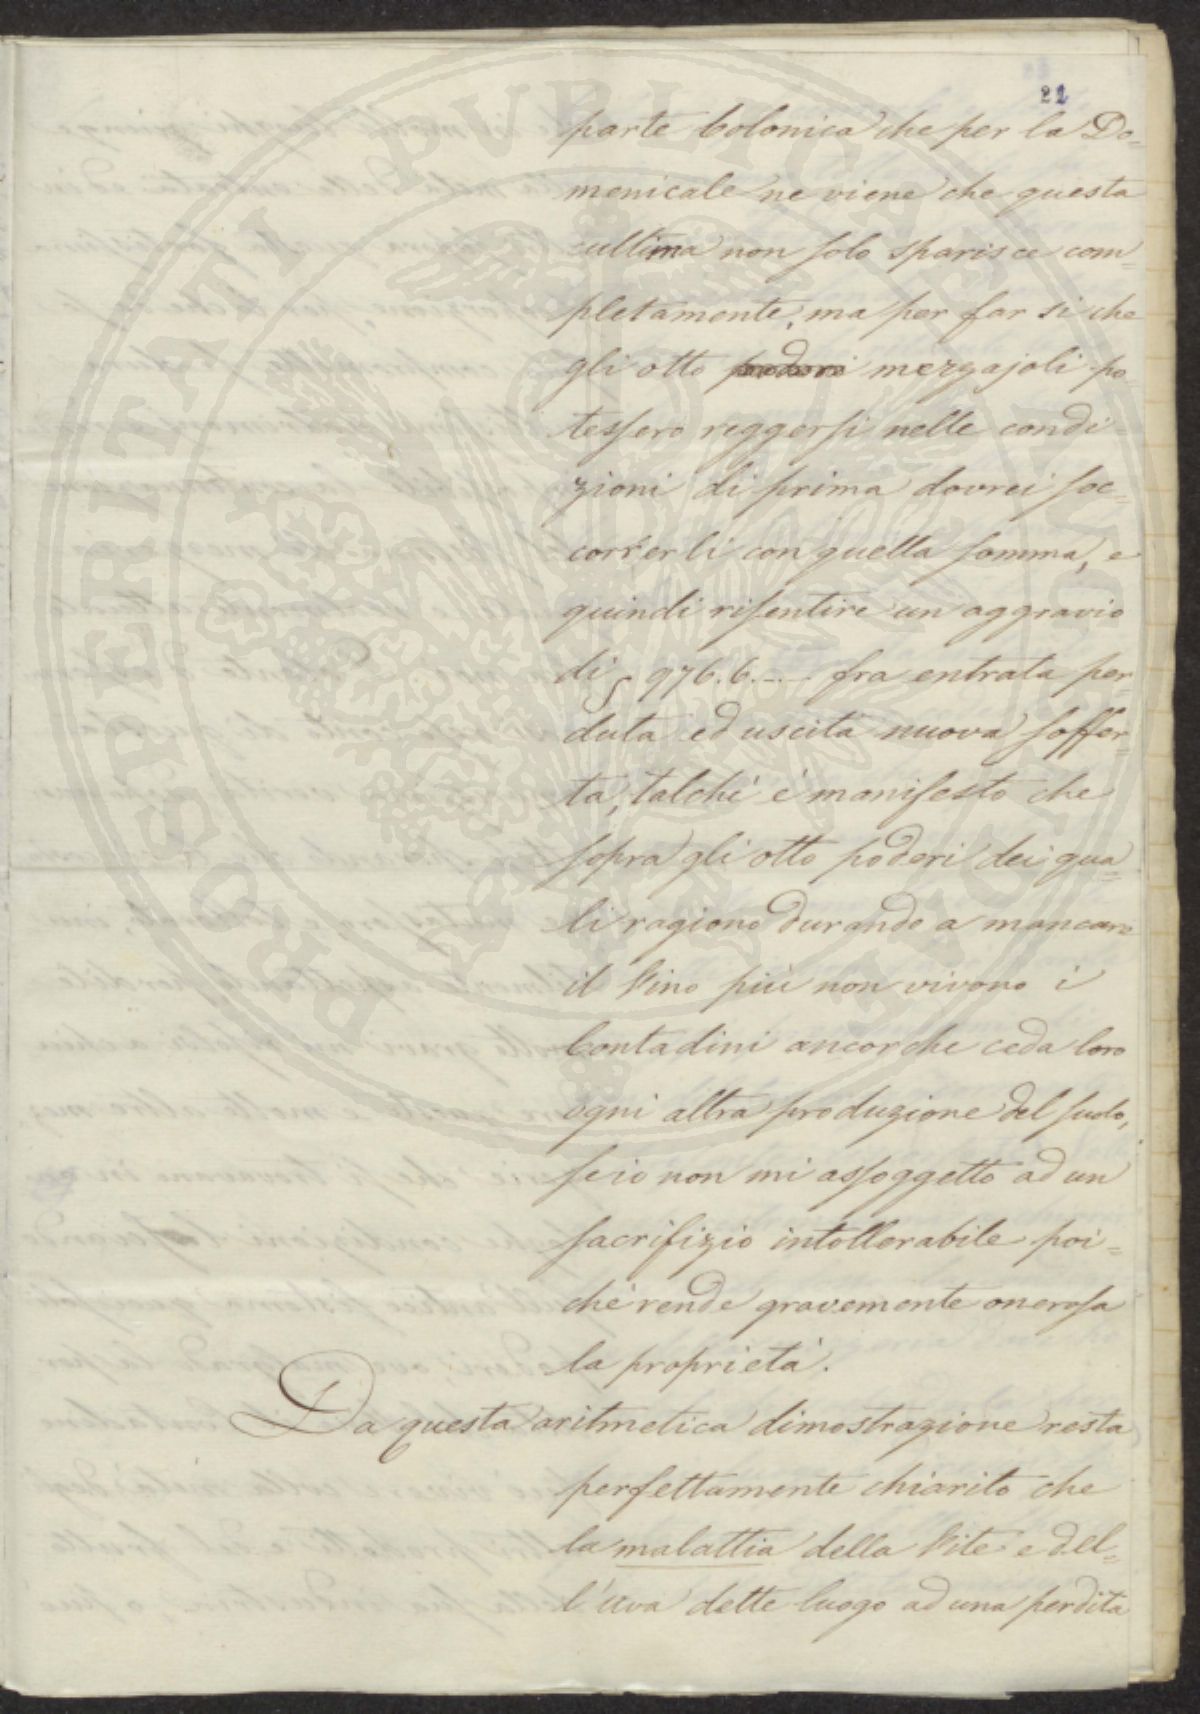 21
parte Colonica che per la Do=
menicale ne viene che questa
ultima non solo sparisce com=
pletamente, ma per far si che
gli otto poderi mezzajoli po=
tessero reggersi nelle condi=
zioni di prima dovrei soc=
correrli con quella somma, e
quindi risentire un aggravio
di 976.6.-- fra entrata per=
duta ed uscita nuova soffer=
ta, talchè è manifesto che
sopra gli otto poderi dei qua=
li ragiono durando a mancare
il Vino più non vivono i
Contadini ancorche ceda loro
ogni altra produzione del suolo,
se io non mi assoggetto ad un
sacrifizio intollerabile poi=
chè rende gravemente onerosa
la proprietà.
Da questa aritmetica dimostrazione resta
perfettamente chiarito che
la malattia della Vite e del=
l'uva dette luogo ad una perdita
PROSPERITATI PUBLICAE AUGENDAE